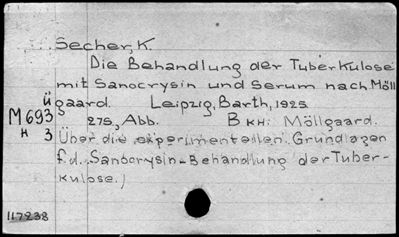 Secher, K.
Die Behandlung der Tuberkulose
mit Sanocrysin und Serum nach Möll
gaard. Leipzig, Barth, 1925
275, Abb. Bkh: Möllgaard.
Über die experimentellen Grundlagen
f.d. Sanocrysin-Behandlung der Tuber-
kulose.)
ü
M 693
H 3
117238